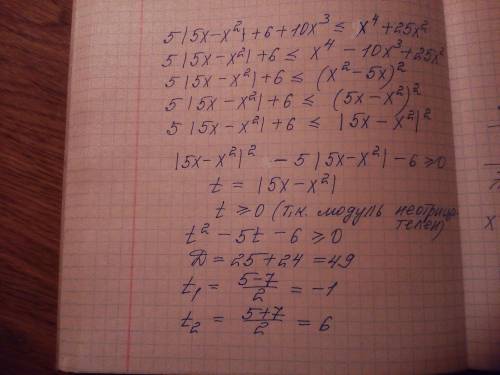 5|5x-x²|+6+10x³ ≤ x⁴+25x²
5|5x-x²|+6 ≤ x⁴-10x³+25x²
5|5x-x²|+6 ≤ (x²-5x)²
5|5x-x²|+6 ≤ (5x-x²)²
5|5x-x²|+6 ≤ |5x-x²|²
|5x-x²|² -5|5x-x²|-6≥0
t = |5x-x²|
t ≥0 (т.к. модуль неотрица-
телен)
t²-5t-6≥0
D = 25+24 =49
t₁ = (5-7)/2 = -1
t₂ = (5+7)/2 = 6
x